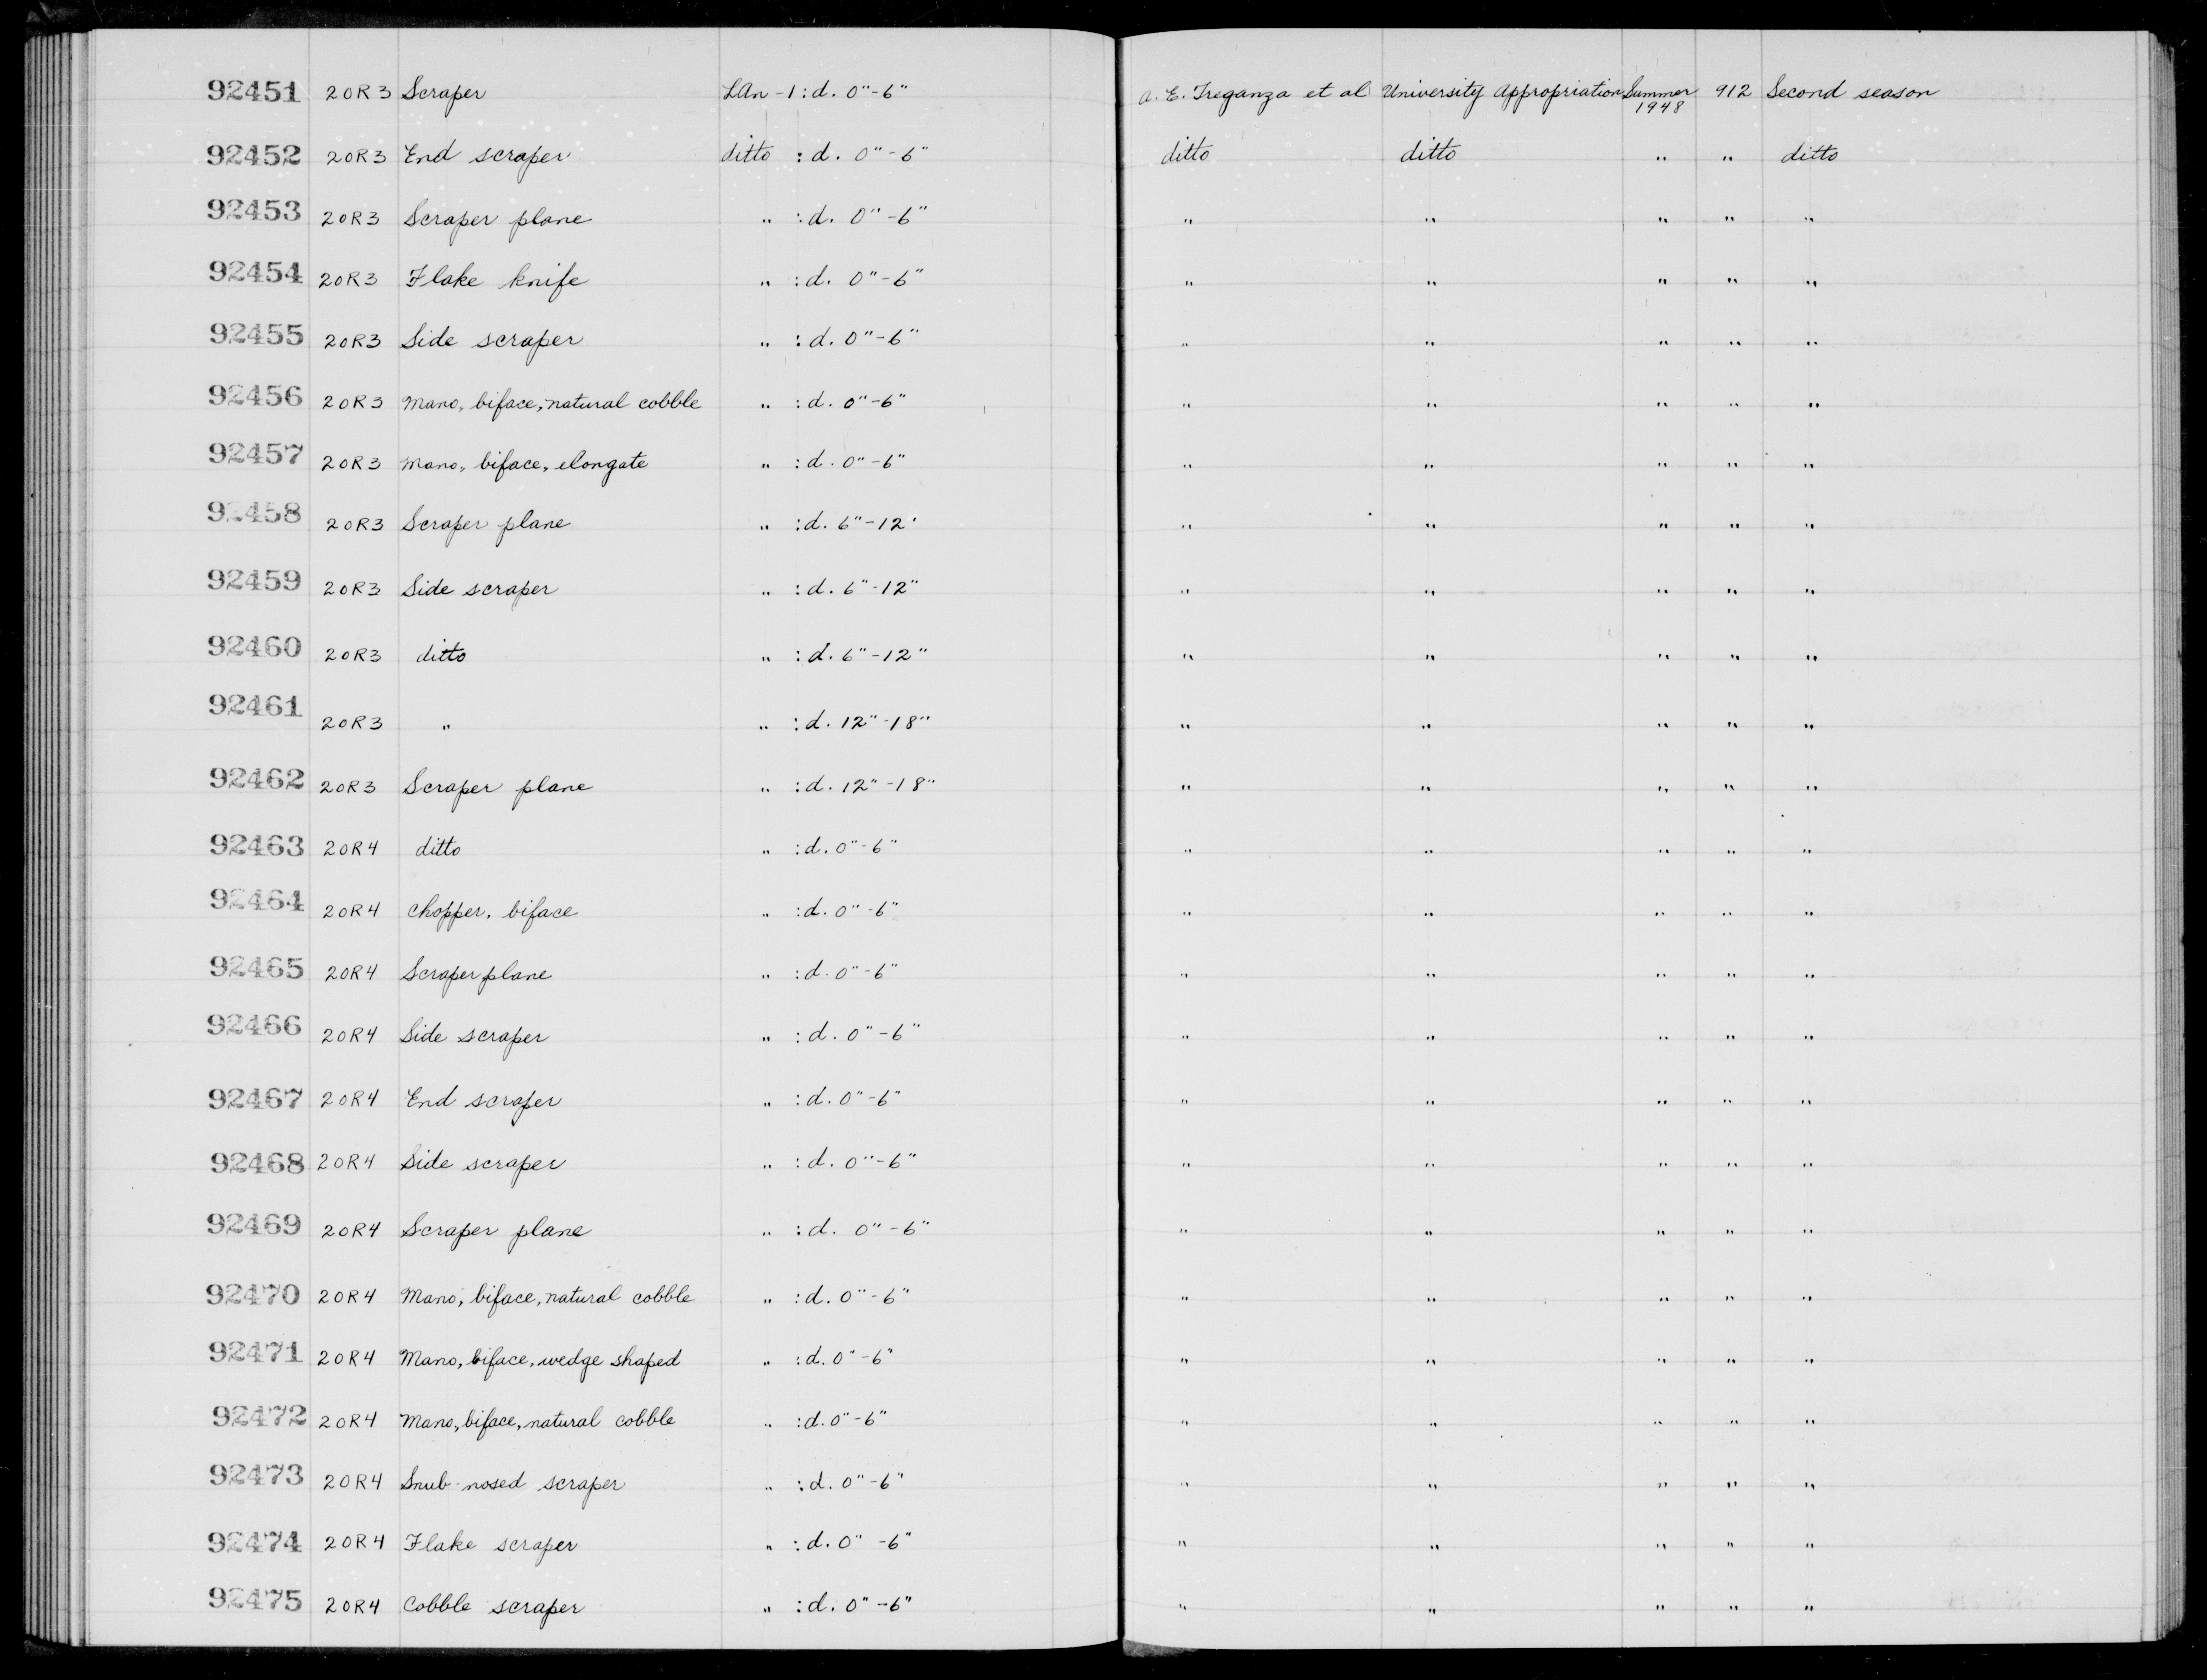 92451 20R3 Scraper LAn-1 : d. 0"-6" A. E. Treganza et al University Appropriation Summer 1948 912 Second season
92452 20R3 End scraper ditto : d. 0"-6" ditto ditto " " ditto
92453 20R3 Scraper plane " : d. 0"-6" " " " " "
92454 20R3 Flake knife " : d. 0"-6" " " " " "
92455 20R3 Side scraper " : d. 0"-6" " " " " "
92456 20R3 Mano, biface, natural cobble " : d. 0"-6" " " " " "
92457 20R3 Mano, biface, elongate " : d. 0"-6" " " " " "
92458 20R3 Scraper plane " : d. 6"-12' " " " " "
92459 20R3 Side scraper " : d. 6"-12" " " " " "
92460 20R3 ditto " : d. 6"-12" " " " " "
92461 20R3 " " : d. 12"-18" " " " " "
92462 20R3 Scraper plane " : d. 12"-18" " " " " "
92463 20R4 ditto " : d. 0"-6" " " " " "
92464 20R4 Chopper, biface " : d. 0"-6" " " " " "
92465 20R4 Scraper plane " : d. 0"-6" " " " " "
92466 20R4 Side scraper " : d. 0"-6" " " " " "
92467 20R4 End scraper " : d. 0"-6" " " " " "
92468 20R4 Side scraper " : d. 0"-6" " " " " "
92469 20R4 Scraper plane " : d. 0"-6" " " " " "
92470 20R4 Mano, biface, natural cobble " : d. 0"-6" " " " " "
92471 20R4 Mano, biface, wedge shaped " : d. 0"-6" " " " " "
92472 20R4 Mano, biface, natural cobble " : d. 0"-6" " " " " "
92473 20R4 Snub-nosed scraper " : d. 0"-6" " " " " "
92474 20R4 Flake scraper " : d. 0"-6" " " " " "
92475 20R4 Cobble scraper " : d. 0"-6" " " " " "